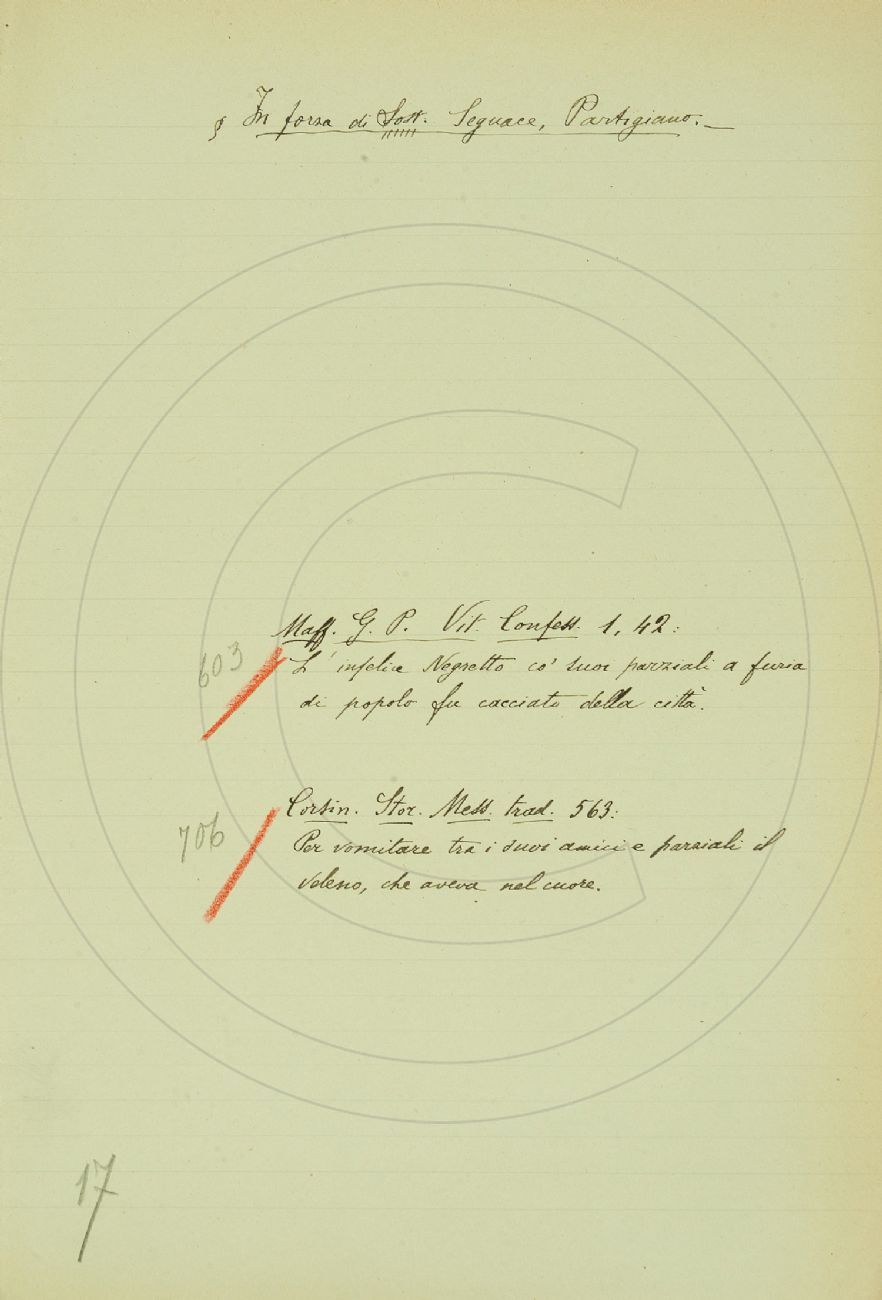 § In forza di Sost. Seguace, Partigiano. _
Maff. G. P. Vit. Confess. 1, 42:
603
L' infelice Negretto co' suoi parziali a furia
di popolo fu cacciato della città.
Corsin. Stor. Mess. trad. 563:
706
Per vomitare tra i suoi amici e parziali il
veleno, che aveva nel cuore.
17